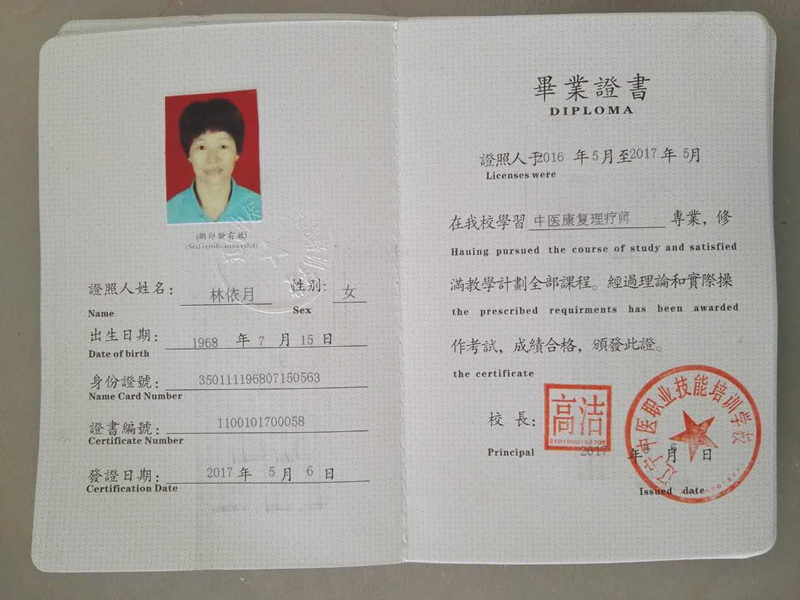 (鋼印驗有效)
(Seal certification valid)
證照人姓名: 林依月 性别: 女
Name Sex
出生日期: 1968 年 7 月 15 日
Date of birth
身份證號: 350111196807150563
Name Card Number
證書編號: 1100101700058
Certificate Number
發證日期: 2017 年 5 月 6 日
Certification Date
畢業證書
DIPLOMA
證照人于2016 年 5月至2017 年 5月
Licenses were
在我校學習 中医康复理疗师 專業，修
Hauing pursued the course of study and satisfied
滿教學計劃全部課程。經過理論和實際操
the prescribed requirments has been awarded
作考試，成績合格，頒發此證。
the certificate
校長: 高洁
Principal
2017 年 月 日
Issued date
辽宁中医职业技能培训学校